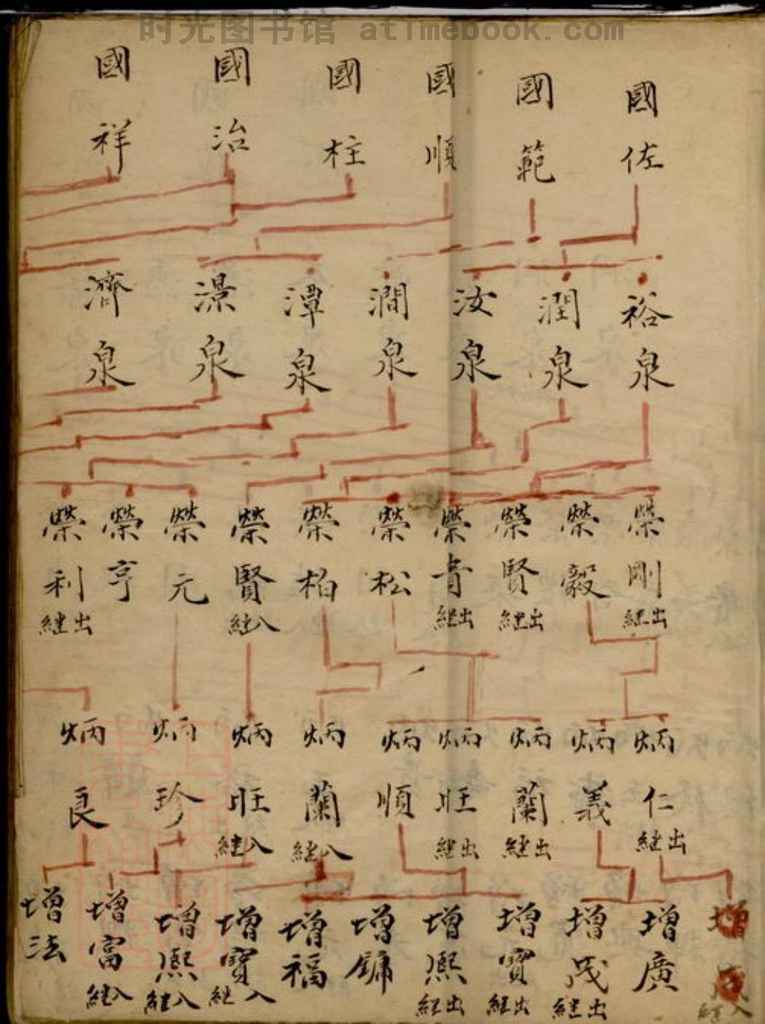 时光图书馆 atimebook.com
國佐 國範 國順 國柱 國治 國祥
裕泉 潤泉 汝泉 澗泉 潭泉 濕泉 濟泉
榮剛出継 榮毅 榮賢出継 榮貴出継 榮松 榮柏 榮賢入継 榮元 榮亨 榮利出継
炳仁出継 炳義 炳蘭出継 炳旺出継 炳順 炳蘭入継 炳旺入継 炳珍 炳良
增入継 增廣 增茂出継 增寶出継 增熙出継 增鏞 增福 增寶入継 增熙入継 增富入継 增法